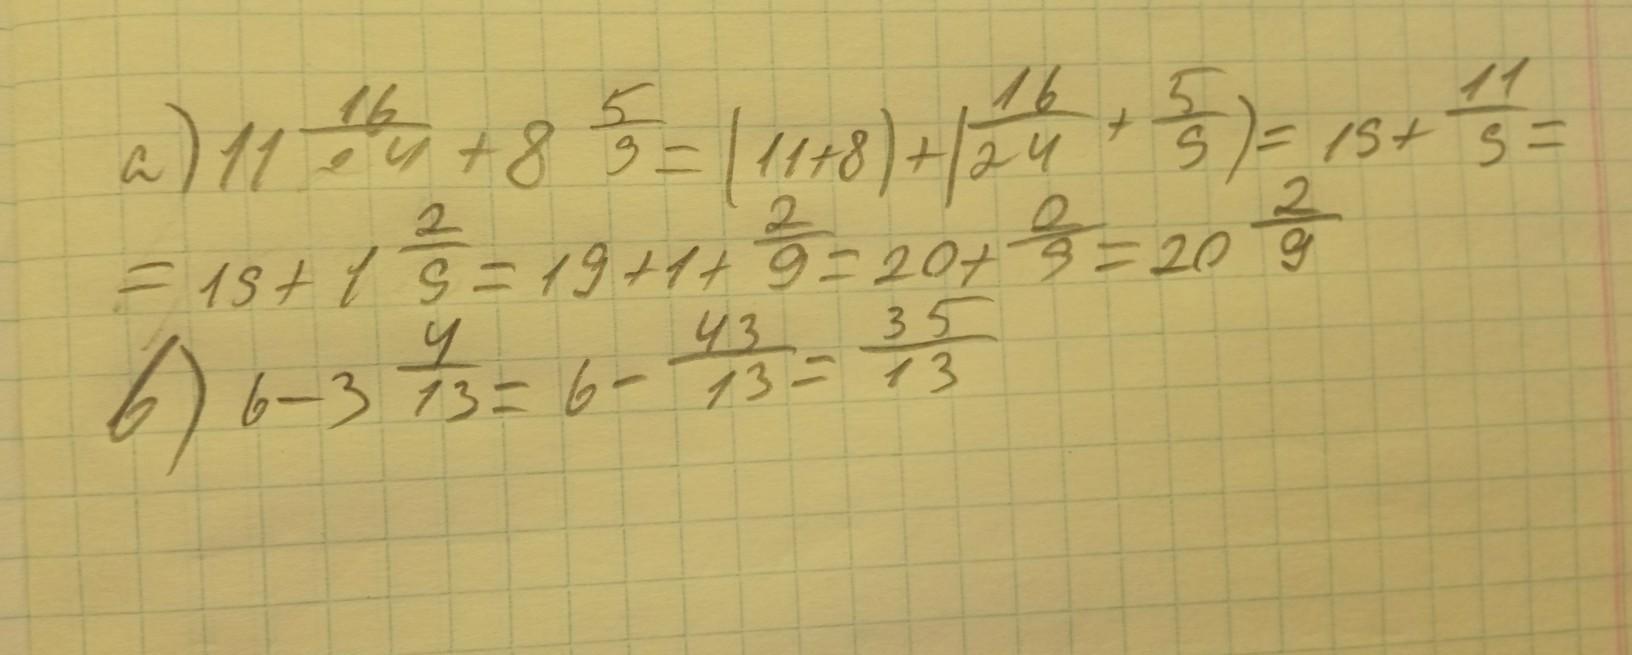 а) 11 16/24 + 8 5/9 = (11+8)+(16/24 + 5/9) = 19 + 11/9 =
= 19 + 1 2/9 = 19+1+ 2/9 = 20+ 2/9 = 20 2/9
б) 6-3 4/13 = 6 - 43/13 = 35/13